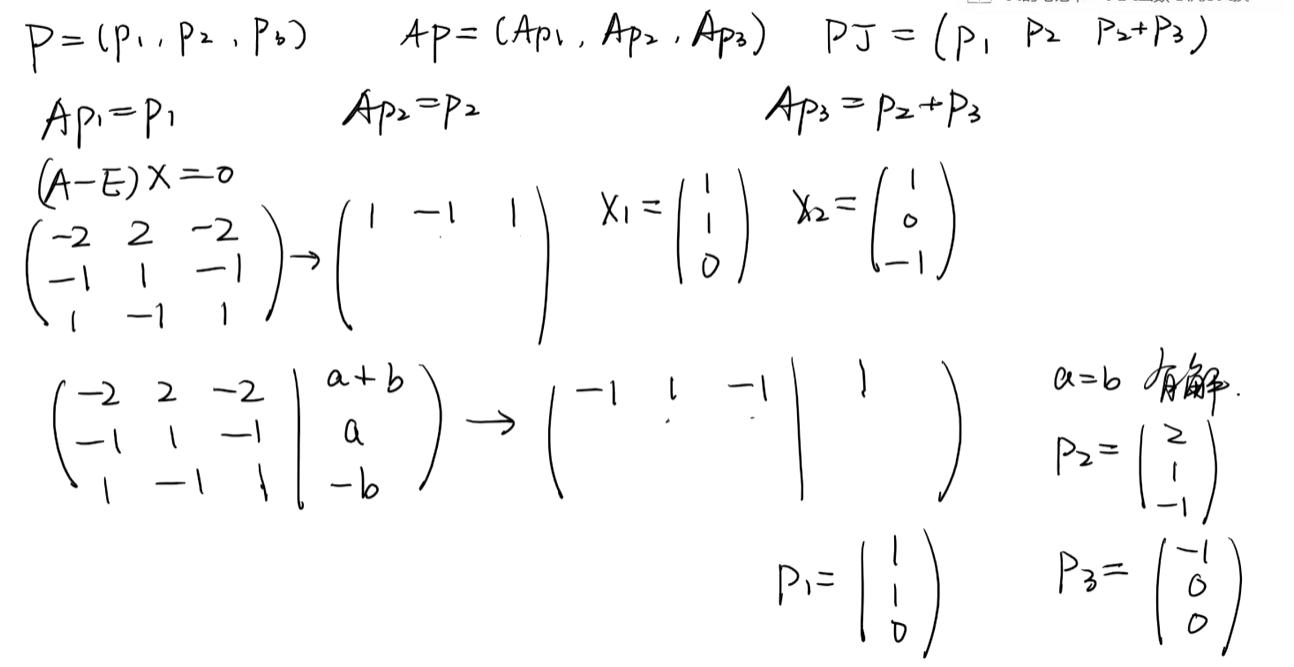 P=(p₁,p₂,p₃) AP=(Ap₁,Ap₂,Ap₃) PJ=(p₁ p₂ p₂+p₃)
Ap₁=p₁ Ap₂=p₂ Ap₃=p₂+p₃
(A-E)X=0
(-2 2 -2 → (1 -1 1) X₁=(1 X₂=(1
-1 1 -1 1 0
1 -1 1) 0) -1)
(-2 2 -2 | a+b → (-1 1 -1 | 1) a=b 有解.
-1 1 -1 | a
1 -1 1 | -b)
P₂=(2
1
-1)
P₁=(1 P₃=(-1
1 0
0) 0)